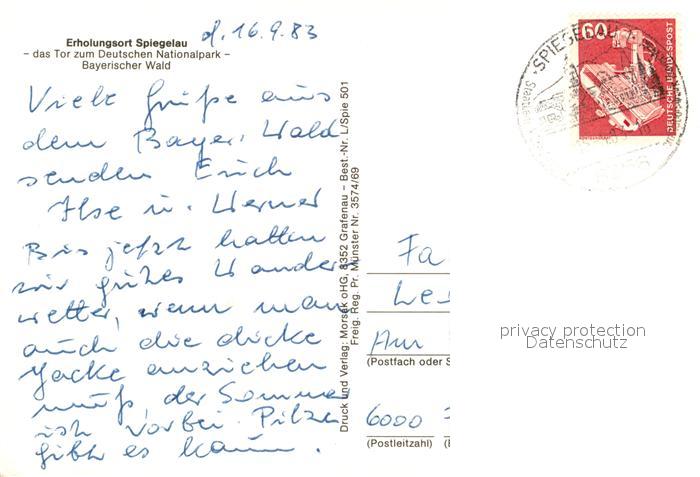 d. 16.9.83
Erholungsort Spiegelau
- das Tor zum Deutschen Nationalpark -
Bayerischer Wald
Viele Grüße aus
dem Bayer. Wald
senden Erich
Ilse u. Werner
Bis jetzt hatten
wir gutes Wander
wetter, wenn man
auch die dicke
Jacke anziehen
muß, der Sommer
ist vorbei. Pilze
gibt es kaum.
Druck und Verlag: Morsak oHG, 8352 Grafenau – Best.-Nr. L/Spie 501
Freig. Reg. Pr. Münster Nr. 3574/69
60
DEUTSCHE BUNDESPOST
SPIEGELAU
Fa
Am
(Postfach oder S
6000
(Postleitzahl)
privacy protection
Datenschutz